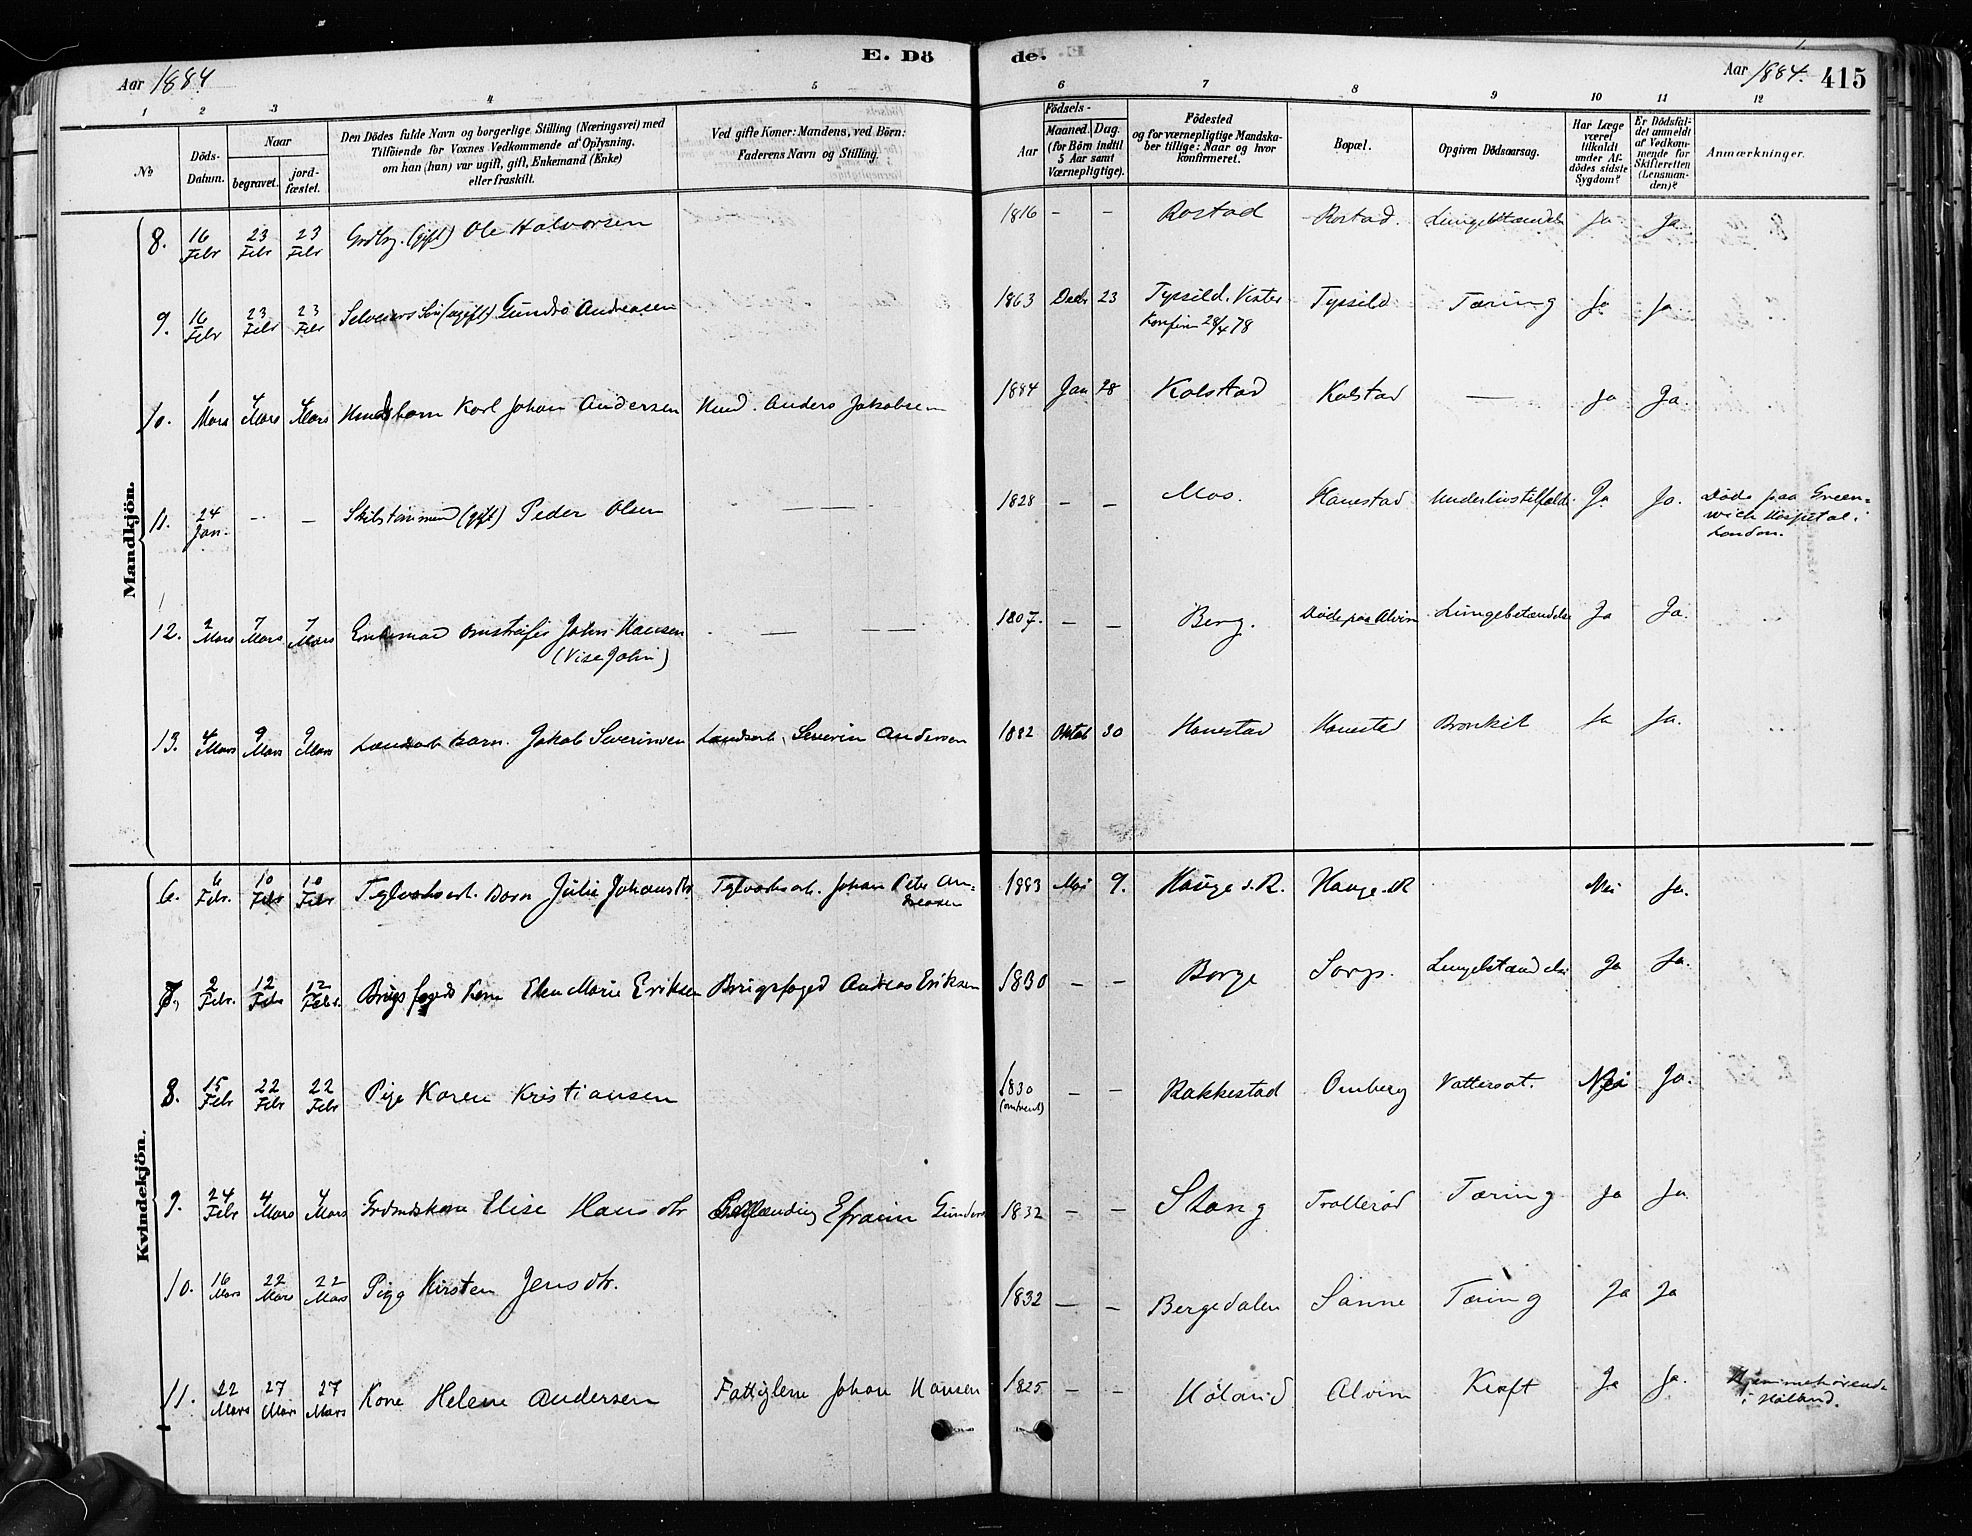 E. Dö de.
Aar 1884 Aar 1884. 415
1 2 3 4 5 6 7 8 9 10 11 12
No
Döds-Datum.
Naar
begravet.
jord-fæstet.
Den Dödes fulde Navn og borgerlige Stilling (Næringsvei) med
Tilföiende for Voxnes Vedkommende af Oplysning,
om han (hun) var ugift, gift, Enkemand (Enke)
eller fraskilt.
Ved gifte Koner: Mandens, ved Börn:
Faderens Navn og Stilling.
Födsels-
Aar
Maaned. Dag.
(for Börn indtil
5 Aar samt
Værnepligtige).
Födested
og for værnepligtige Mandska-
ber tillige: Naar og hvor
konfirmeret.
Bopæl.
Opgiven Dödsaarsag.
Har Læge
været
tilkaldt
under Af-
dödes sidste
Sygdom?
Er Dödsfal-
det anmeldt
af Vedkom-
mende for
Skifteretten
(Lensman-
den)?
Anmærkninger.
Mandkjön.
8. 16 Febr 23 Febr 23 Febr (gift) Ole Halvorsen 1816 - - Rostad Rostad. Ja Ja.
9. 16 Febr 23 Febr 23 Febr Selveiers Søn (ugift) Andreasen 1863 Decbr 23 Tyssild. Vister Tyssild Tæring Ja Ja.
Konfirm 28/4 78
10. 1 Mars 4 Mars 4 Mars Karl Johan Andersen Anders Jakobsen 1884 Jan 28 Kolstad Kolstad — Ja Ja.
11. 24 Jan. - - (gift) Peder Olsen — 1828 - - Mos. Hanestad Underlivstilfælde Ja Ja. Døde paa Green-
wich Hospital i
London.
12. 2 Mars 7 Mars 7 Mars Enkemand John Hansen — — 1807. - - Berg. Døde paa Alvim Lungebetændelse Ja Ja.
(Vise John)
13. 4 Mars 9 Mars 9 Mars barn. Jakob Severinsen Severin Andersen 1882 Oktob 30 Hanestad Hanestad Bronkit Ja Ja.
Kvindekjön.
6. 6 Febr. 10 Febr 10 Febr Teglværksarb. Barn Julie Johansdtr Teglværksarb. Johan Peter An-
dreasen 1883 Mai 9. Hauge s. R. Hauge s. R Nei Ja.
7. 2 Febr. 12 Febr 12 Febr. Brugsfogeds Kone Elen Marie Eriksen Brugsfoged Andreas Eriksen 1830 - - Borge Sorgs. Ja Ja.
8. 15 Febr 22 Febr 22 Febr Pige Karen Kristiansen 1830 - - Rakkestad Omberg Vattersot. Nei Ja.
(omtrent)
9. 24 Febr 4 Mars 4 Mars Elise Hansdtr Efraim 1832 - - Stang Trollerød Tæring Ja Ja
10. 16 Mars 22 Mars 22 Mars Pige Kirsten Jensdtr. 1832 - - Bergedalen Sanne Tæring Ja Ja
11. 22 Mars 27 Mars 27 Mars Kone Helene Andersen Fattiglem Johan Hansen 1825 - - Høland Alvim Kræft Ja Ja. Hjemmehørende
i Høland.